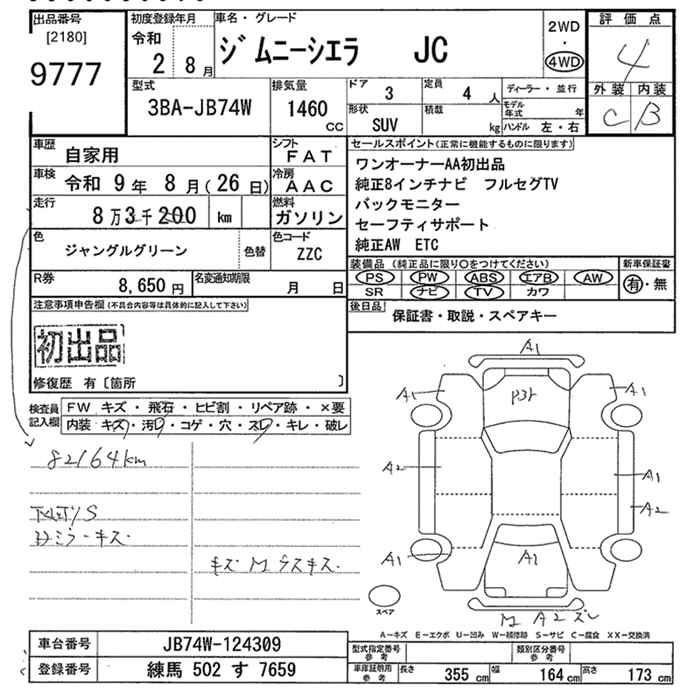 出品番号
[2180]
9777
初度登録年月
令和
2 8月
車名・グレード
ジムニーシエラ JC
2WD
・
4WD
評価点
4
外装 内装
C B
型式
3BA-JB74W
排気量
1460
CC
ドア
3
定員
4 人
形状
SUV
積載
kg
ディーラー・並行
モデル年式 年
ハンドル 左・右
車歴
自家用
シフト
FAT
車検
令和 9年 8月(26日)
冷房
AAC
走行
8万3千200 km
燃料
ガソリン
色
ジャングルグリーン
色替
色コード
ZZC
R券
8,650円
名変通知期限
月 日
セールスポイント(正常に機能するものに限ります)
ワンオーナーAA初出品
純正8インチナビ フルセグTV
バックモニター
セーフティサポート
純正AW ETC
装備品 (純正品に限り○をつけてください)
PS PW ABS エアB AW
SR ナビ TV カワ
新車保証書
有・無
後日品
保証書・取説・スペアキー
注意事項申告欄(不具合内容等は具体的に記入して下さい)
初出品
修復歴 有〔箇所 〕
検査員
記入欄
FW キズ・飛石・ヒビ割・リペア跡・×要
内装・キズ・汚レ・コゲ・穴・スレ・キレ・破レ
82164km
ミラーキズ
キズ M ラスキズ
A1
A1
P3ト
A1
A2
A1
A2
A1
A1
M A2ズレ
スペア
A-キズ E-エクボ U-凹み W-補修跡 S-サビ C-腐食 XX-交換済
車台番号
JB74W-124309
登録番号
練馬 502 す 7659
型式指定番号
参考
類別区分番号
参考
車庫証明用
参考
長さ 355 cm 幅 164 cm 高さ 173 cm